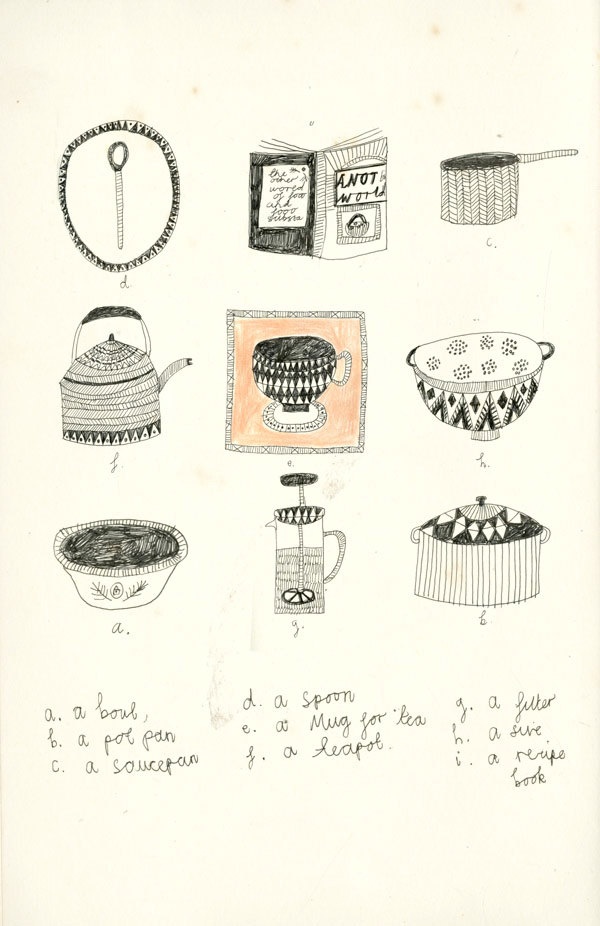 the
other
world
of foo
and
food
substa
ANOT
world
d.
c.
f.
e.
h.
a.
g.
b.
a. a boul,
b. a pot pan
c. a saucepan
d. a spoon
e. a Mug for tea
f. a teapot.
g. a filter
h. a sive
i. a recipe
book